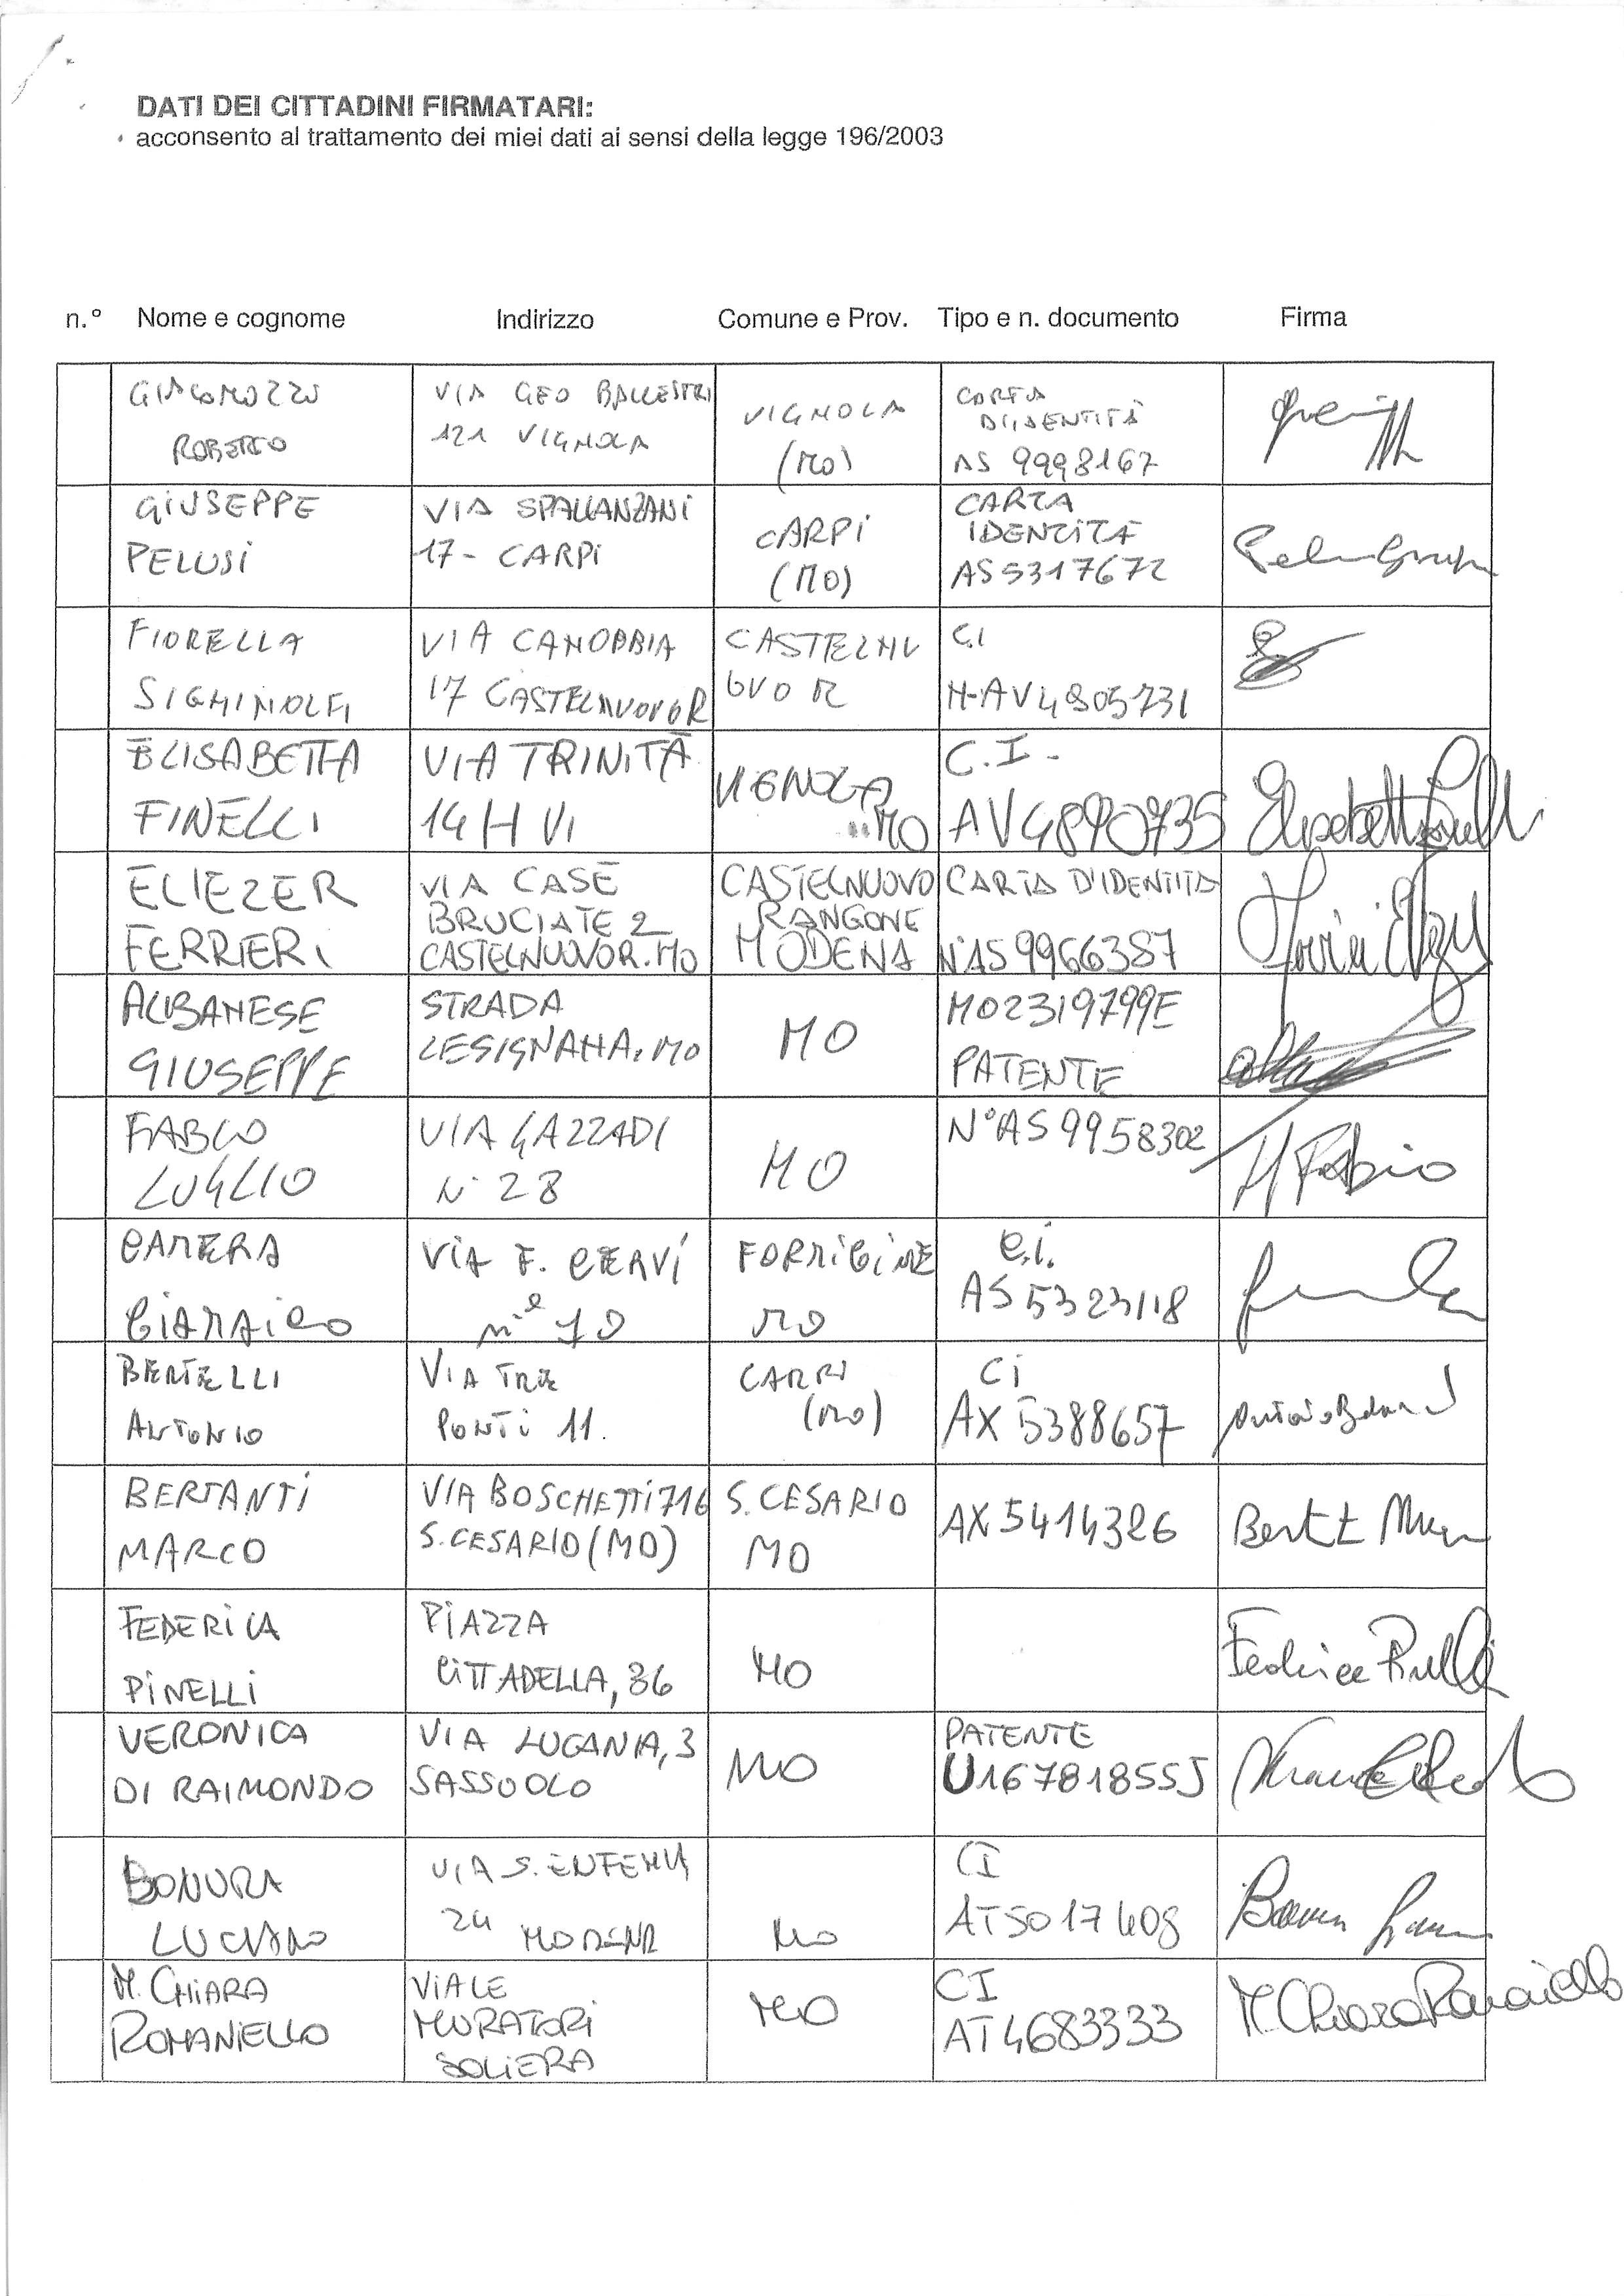 DATI DEI CITTADINI FIRMATARI:
acconsento al trattamento dei miei dati ai sensi della legge 196/2003
n.° Nome e cognome Indirizzo Comune e Prov. Tipo e n. documento Firma
GIACOMOZZO VIA GEO BALLESTRI VIGNOLA CARTA
ROBERTO 121 VIGNOLA (MO) D'IDENTITÀ
AS 9998167
GIUSEPPE VIA SPALLANZANI CARPI CARTA
PELUSI 17- CARPI (MO) IDENTITÀ
AS5317672
FIORELLA VIA CANOBBIA CASTELNU C.I
SIGHINOLFI 17 CASTELNUOVO R OVO R N-AV4805731
ELISABETTA VIA TRINITÀ VIGNOLA C.I- Elisabetta Finelli
FINELLI 14/H VI MO AV4890735
ELIEZER VIA CASE CASTELNUOVO CARTA D'IDENTITA
FERRIERI BRUCIATE 2 RANGONE N°AS9966387
CASTELNUOVO R. MO MODENA
ALBANESE STRADA MO MO2319799E
GIUSEPPE LESIGNANA, MO PATENTE
FABIO VIA GAZZADI MO N°AS9958302
LUGLIO N° 28
CAMERA VIA F. CERVI FORMIGINE C.I.
GIANNICO n° 10 MO AS5323118
BERTELLI VIA TRE CARPI CI
ANTONIO PONTI 11. (MO) AX 5388657
BERTANTI VIA BOSCHETTI 716 S. CESARIO AX5414326
MARCO S. CESARIO (MO) MO
FEDERICA PIAZZA MO Federica Pinelli
PINELLI CITTADELLA, 36
VERONICA VIA LUGANIA, 3 MO PATENTE
DI RAIMONDO SASSUOLO U16781855J
BONURA VIA S. EUFEMIA MO CI
LUCIANO 24 MODENA AT5017408
M. CHIARA VIALE MO CI M Chiara Romaniello
ROMANIELLO MURATORI AT4683333
SOLIERA